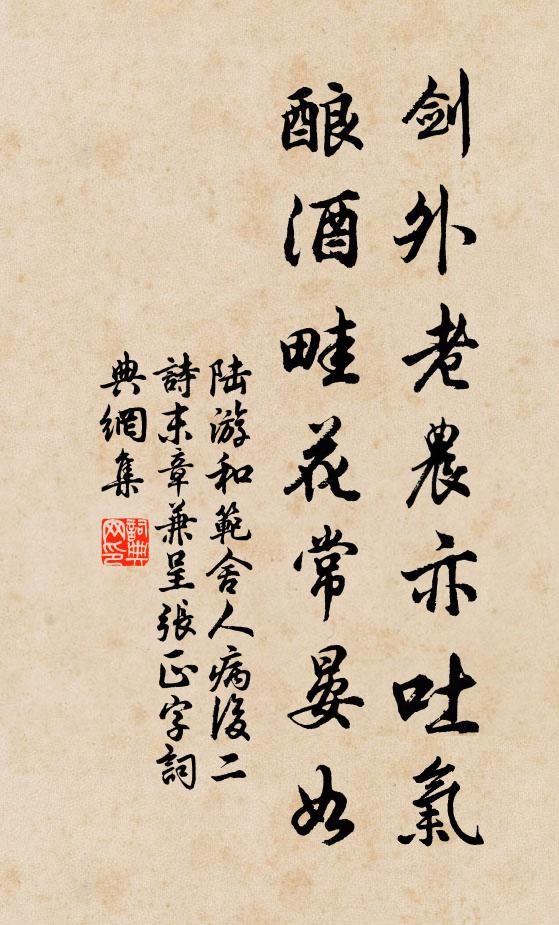 剑外老農亦吐氣
酿酒畦花常晏如
陆游和範舍人病後二
詩末章兼呈張正字詞
典網集
詞典
网印